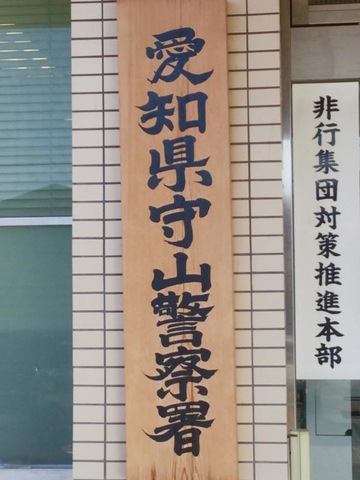 愛知県守山警察署
非行集団対策推進本部